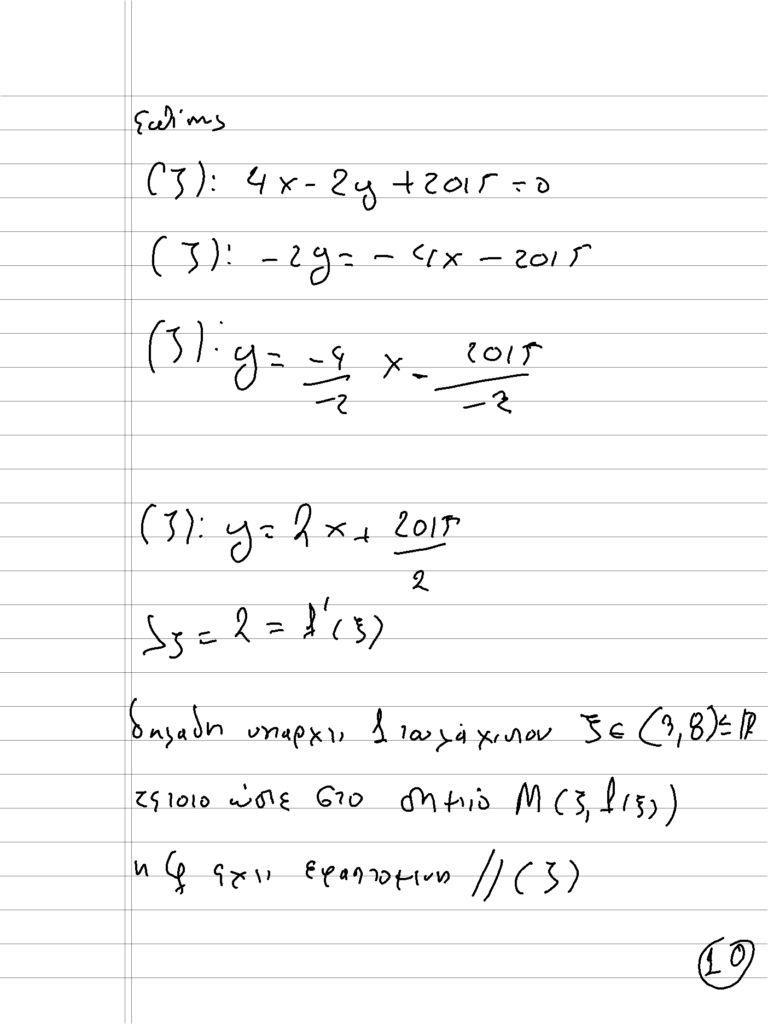 (ζ): 4x - 2y + 2015 = 0
(ζ): -2y = -4x - 2015
(ζ): y = -4/-2 x - 2015/-2
(ζ): y = 2x + 2015/2
λζ = 2 = f'(ξ)
δηλαδη υπαρχει 1 τουλάχιστον ξ ∈ (3,8) ⊆ ℝ
τέτοιο ώστε στο σημείο M(ξ, f(ξ))
η Cf έχει εφαπτομενη // (ζ)
10